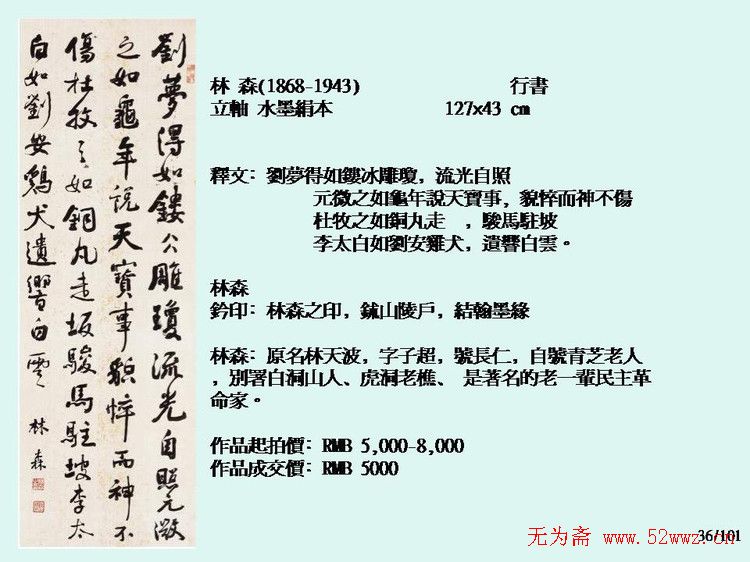 劉夢得如鏤冰雕瓊流光自照元微
之如龜年說天寶事貌悴而神不
傷杜牧之如銅丸走坂駿馬駐坡李太
白如劉安鷄犬遺響白雲
林森
林 森(1868-1943) 行書
立軸 水墨絹本 127x43 cm
釋文: 劉夢得如鏤冰雕瓊, 流光自照
元微之如龜年說天寶事, 貌悴而神不傷
杜牧之如銅丸走 , 駿馬駐坡
李太白如劉安雞犬, 遺響白雲。
林森
鈐印: 林森之印, 鉢山陵戶, 結翰墨緣
林森: 原名林天波, 字子超, 號長仁, 自號青芝老人
, 別署白洞山人、虎洞老樵、 是著名的老一輩民主革
命家。
作品起拍價: RMB 5,000-8,000
作品成交價: RMB 5000
36/101
无为斋 www.52wwz.cn